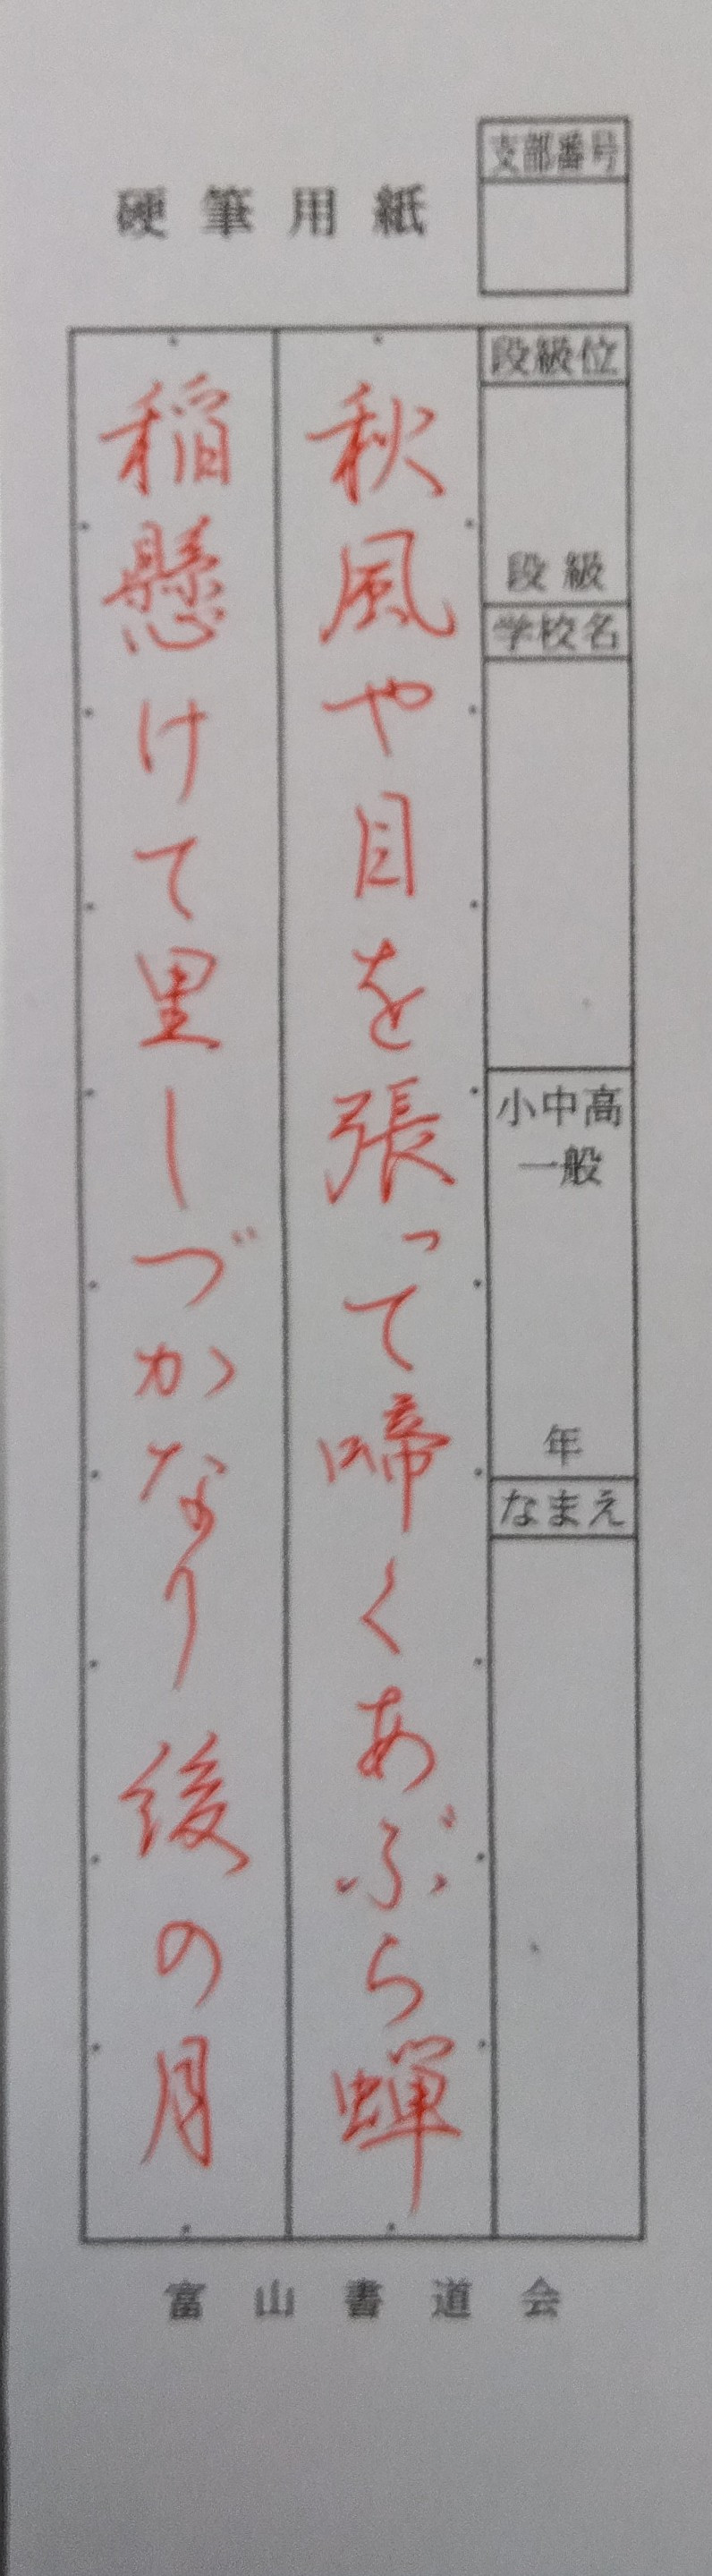 硬筆用紙
支部番号
段級位
段級
学校名
小中高
一般
年
なまえ
秋風や目を張って啼くあぶら蝉
稲懸けて里しづかなり後の月
富山書道会